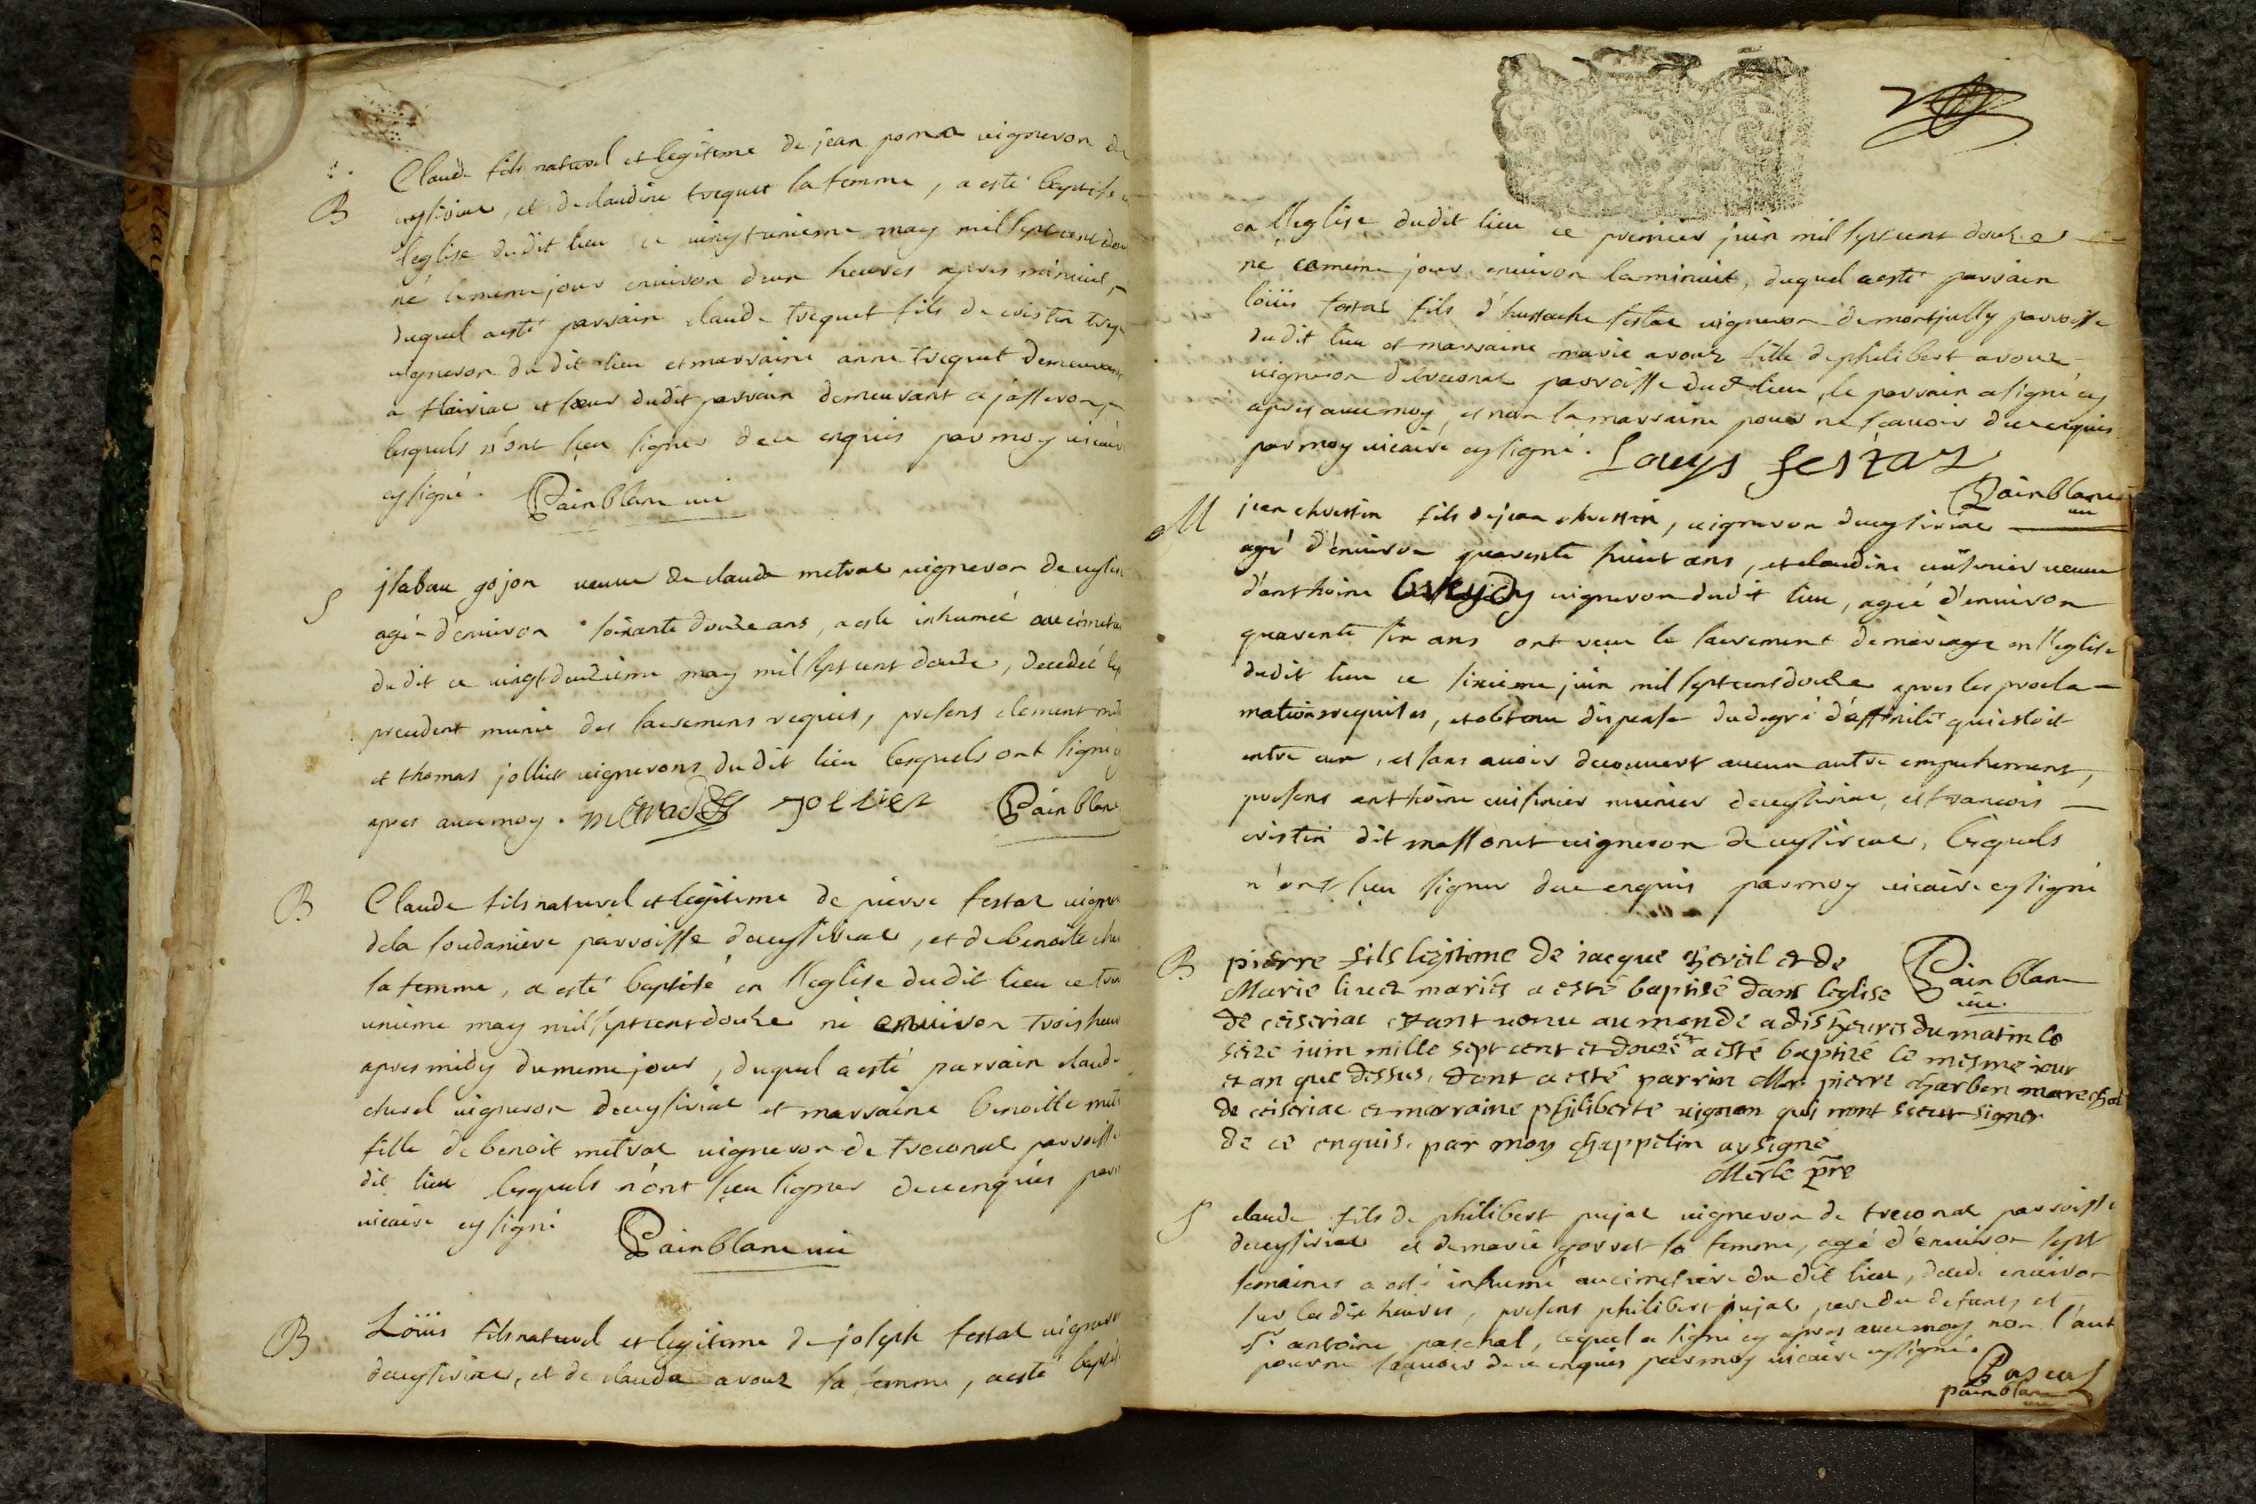 B
Claude fils naturel et legitime de jean vigneron de
ceysiriac, et de claudine trequet sa femme, a esté baptisé
l'eglise dudit lieu ce vingt unieme may mil sept cent
né le meme jour environ deux heures apres minuit,
duquel a esté parrain claude trequet fils de cristin
vigneron dudit lieu et marraine anne trequet demeurant
a et sœur dudit parrain demeurant a jasseron,
lesquels n'ont sceu signer de ce enquis par moy vicaire
cy signé. Painblanc vic
S
jsabau gojon veuve de claude metral vigneron de
agée d'environ soixante douze ans, a este inhumée au
dudit ce vingt deuxieme may mil sept cent douze, decedée
precedent munie des sacremens requis, presens clement
et thomas jolliet vignerons dudit lieu lesquels ont signé
apres avec moy. jolliet Painblanc
B
Claude fils naturel et legitime de pierre festal
de la soudaniere parroisse deceysiriac, et de benoite
sa femme, a esté baptisé en l'eglise dudit lieu ce
unieme may mil sept cent douze né environ trois heures
apres midy du meme jour, duquel a esté parrain claude
churel vigneron deceysiriac et marraine benoitte
fille de benoit metral vigneron de treconal parroisse
dit lieu lesquels n'ont sceu signer de ce enquis
vicaire cy signé Painblanc vic
B
Loüis fils naturel et legitime de joseph festal
deceysiriac, et de clauda avouz sa femme, a esté
en l'eglise dudit lieu ce premier juin mil sept cent douze
né ce meme jour environ la minuit, duquel a esté parrain
loüis festal fils d'hustache festal vigneron de montjully parroisse
dudit lieu et marraine marie avouz fille de philibert avouz
vigneron de treconal parroisse dudt lieu, le parrain a signé cy
apres avec moy, et non la marraine pour ne scavoir de ce enquis
par moy vicaire cy signé. Louys festaz
Painblanc
vic
M
jean chrestin fils de jean chrestin, vigneron deceysiriac
agé d'environ quarente huict ans, et claudine cuisinier veuve
d'anthoine breydy vigneron dudit lieu, agée d'environ
quarente six ans ont receu le sacrement de mariage en l'eglise
dudit lieu ce sixieme juin mil sept cent douze apres les procla-
mations requises, et obtenu dispense du degré d'affinité qui estoit
entre eux, et sans avoir decouvert aucun autre empechement,
presens anthoine cuisinier munier deceysiriac, et francois
cristin dit massonet vigneron deceysiriac, lesquels
n'ont sceu signer de ce enquis par moy vicaire cy signé
Painblanc
vic.
B
pierre fils legitime de iacque et de
Marie mariés a esté baptisé dans leglise
de ceiseriac estant venu au monde a dis heures du matin le
seize iuin mille sept cent et douze et a esté baptisé le mesme iour
et an que dessus, dont a esté parrin Mr. pierre charben marechal
de ceiseriac et marraine philiberte vignon qui n'ont sceu signer
de ce enquis par moy chappelin aysigne
Merle pre
S
claude fils de philibert pujat vigneron de treconal parroisse
deceysiriac et de marie gorret sa femme, agé d'environ sept
semaines a esté inhumé au cimetiere du dit lieu, decedé environ
sur les dix heures, presens philibert pujat pere du defunct et
Sr antoine paschal, lequel a signé cy apres avec moy non l'aut
pour ne scavoir de ce enquis par moy vicaire cy signé.
Pascal
painblanc